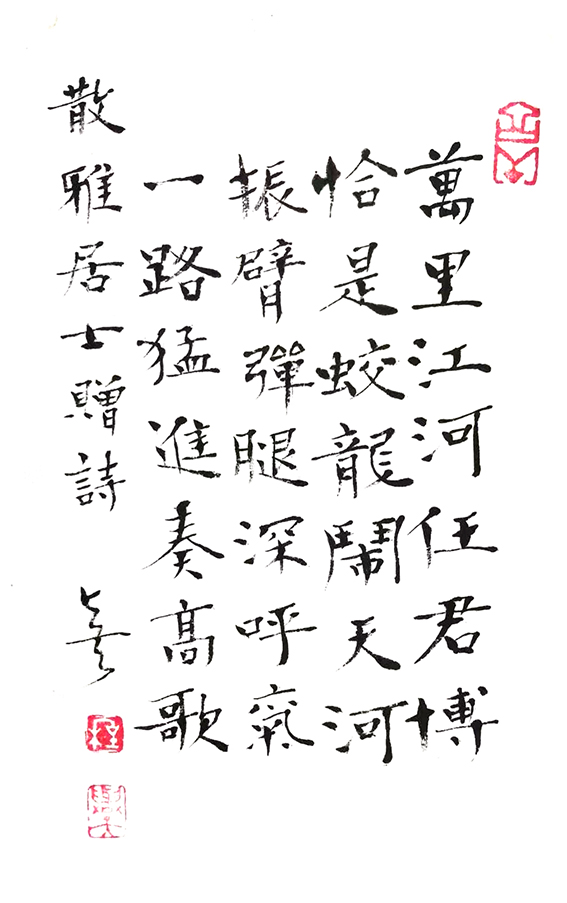 萬里江河任君博
恰是蛟龍鬧天河
振臂彈腿深呼氣
一路猛進奏高歌
散雅居士贈詩